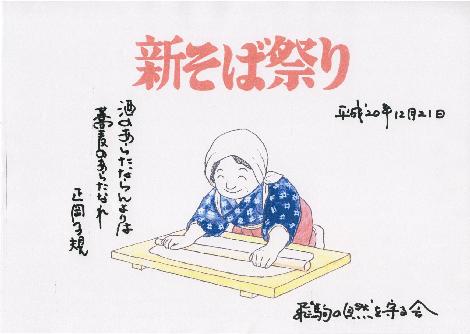 新そば祭り
平成20年12月21日
酒のあらたならんよりは
蕎麦のあらたなれ
正岡子規
飛駒の自然を守る会